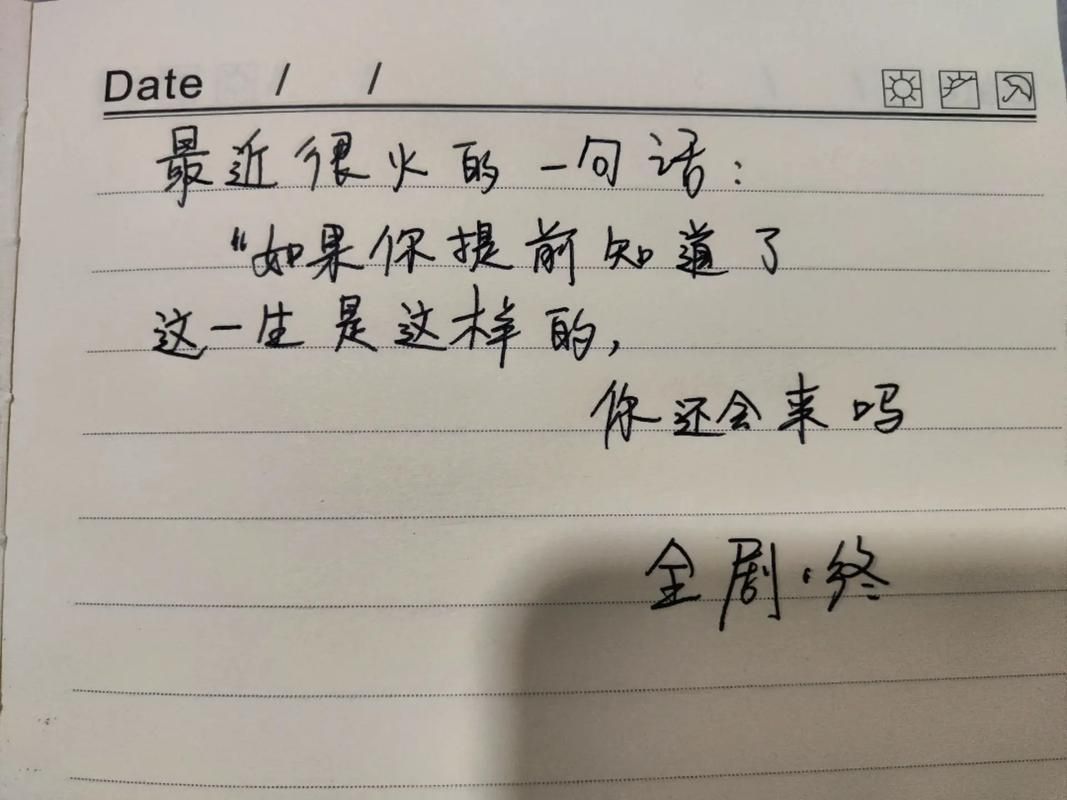 Date / /
最近很火的一句话：
“如果你提前知道了
这一生是这样的，
你还会来吗
全剧·终